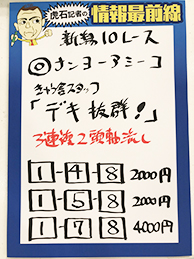 虎石記者の
情報最前線
新潟10レース
◎ナンヨーアミーコ
きゅう舎スタッフ
「デキ抜群!」
3連複2頭軸流し
1-4-8 2000円
1-5-8 2000円
1-7-8 4000円